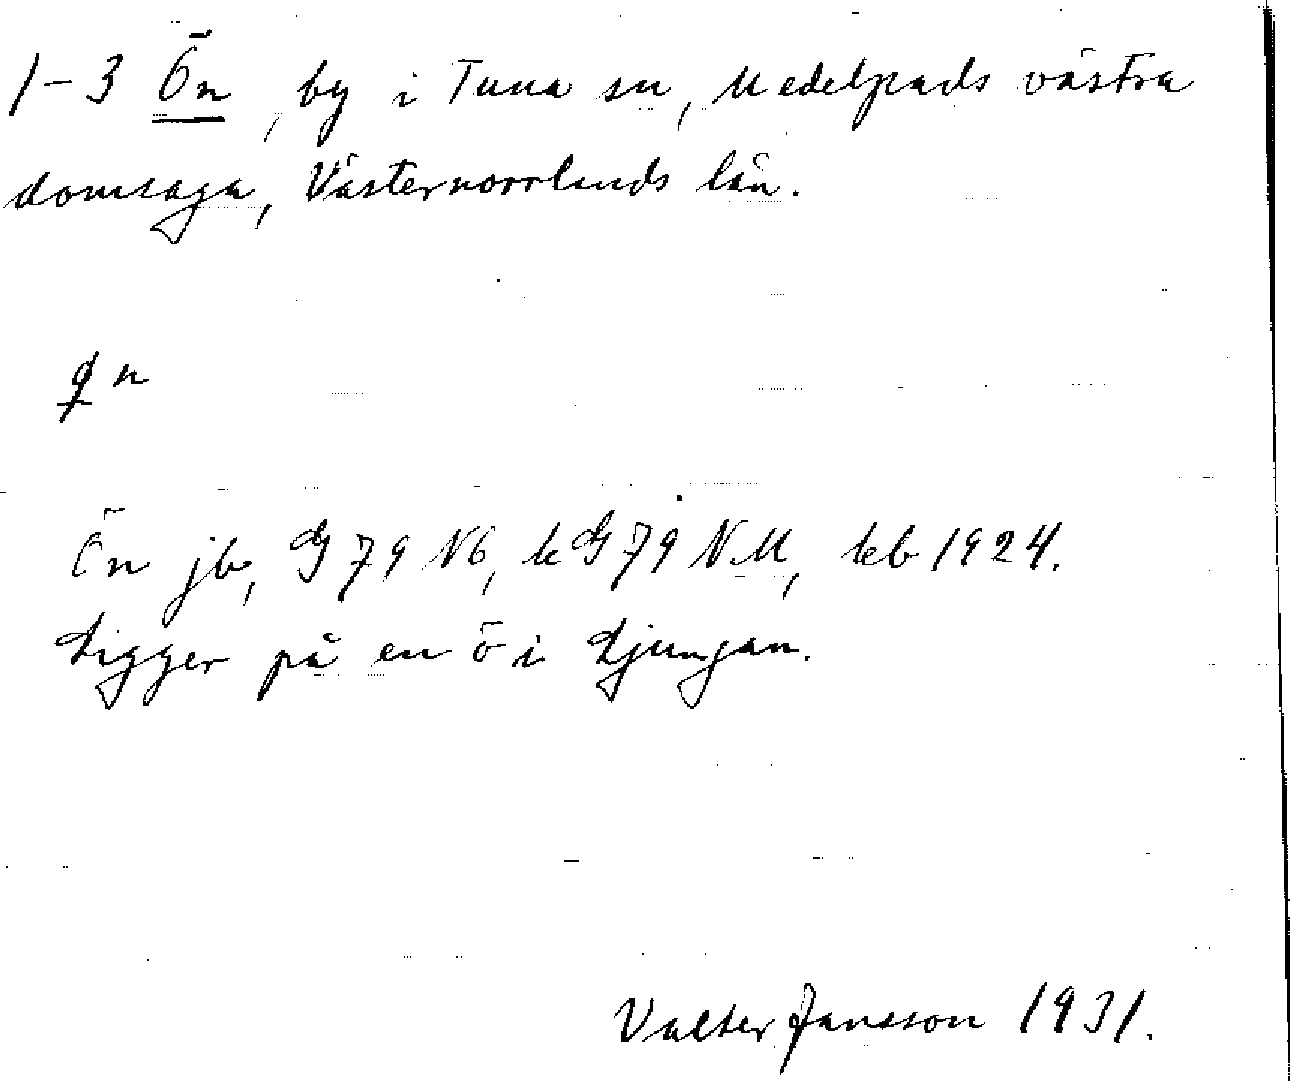 1-3 Ön, by i Tuna sn, Medelpads västra
domsaga, Västernorrlands län.
Ön jb, G 79 Nb, kG 79 NM, kb 1924.
Ligger på en ö i Ljungan.
Valter Jansson 1931.